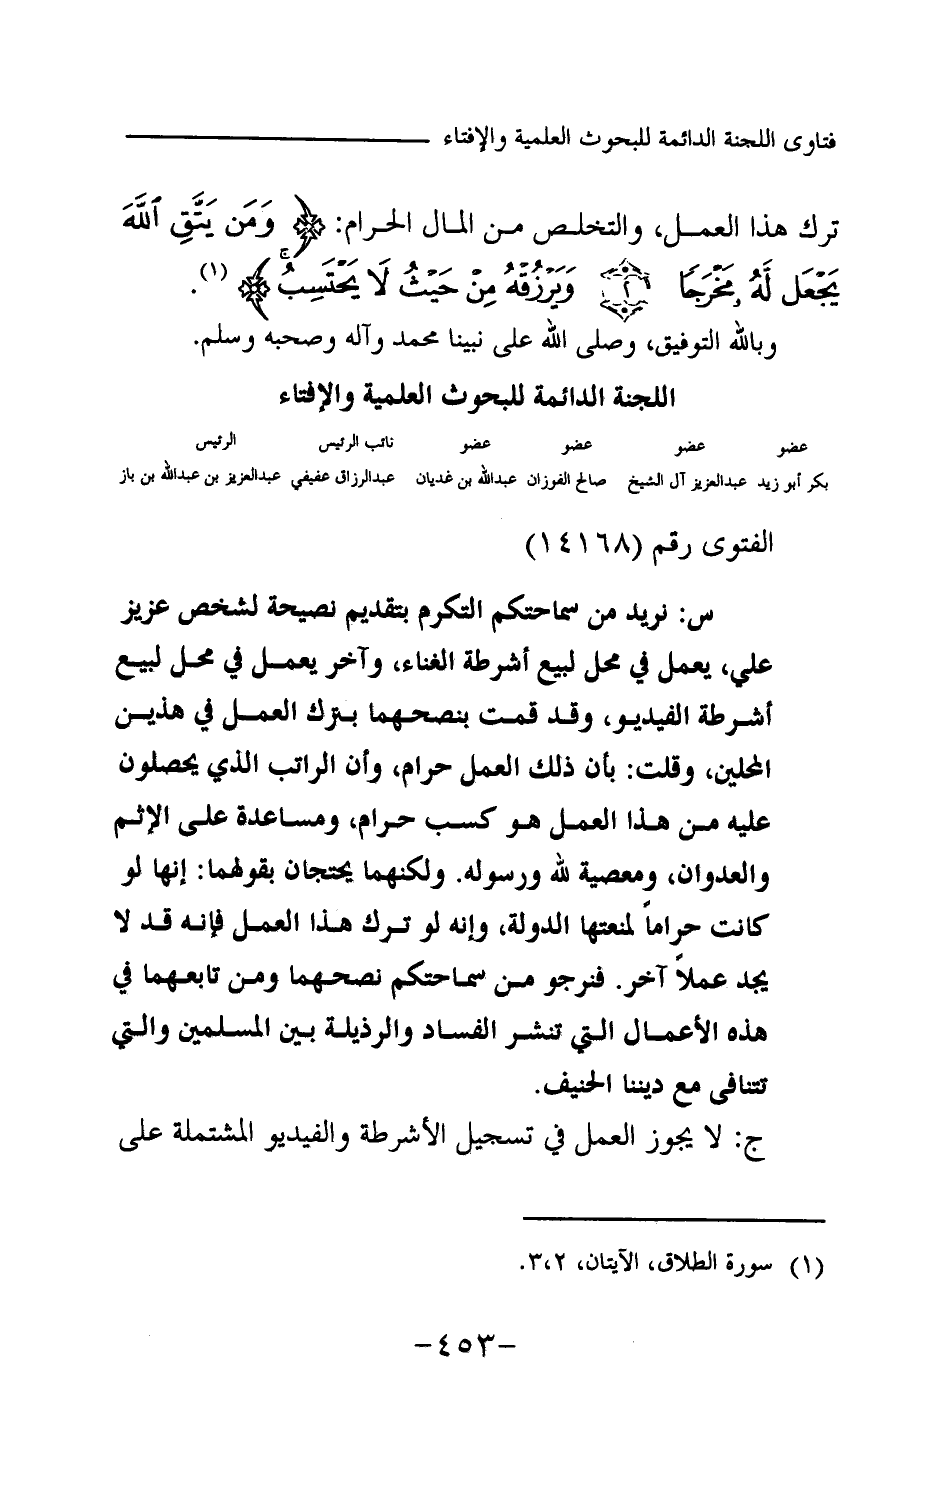 فتاوى اللجنة الدائمة للبحوث العلمية والإفتاء
ترك هذا العمل، والتخلص من المال الحرام: ﴿ وَمَن يَتَّقِ ٱللَّهَ
يَجْعَل لَّهُۥ مَخْرَجًا ٢ وَيَرْزُقْهُ مِنْ حَيْثُ لَا يَحْتَسِبُ ۚ ﴾ (١).
وبالله التوفيق، وصلى الله على نبينا محمد وآله وصحبه وسلم.
اللجنة الدائمة للبحوث العلمية والإفتاء
عضو عضو عضو عضو نائب الرئيس الرئيس
بكر أبو زيد عبدالعزيز آل الشيخ صالح الفوزان عبدالله بن غديان عبدالرزاق عفيفي عبدالعزيز بن عبدالله بن باز
الفتوى رقم (١٤١٦٨)
س: نريد من سماحتكم التكرم بتقديم نصيحة لشخص عزيز
علي، يعمل في محل لبيع أشرطة الغناء، وآخر يعمل في محل لبيع
أشرطة الفيديو، وقد قمت بنصحهما بترك العمل في هذين
المحلين، وقلت: بأن ذلك العمل حرام، وأن الراتب الذي يحصلون
عليه من هذا العمل هو كسب حرام، ومساعدة على الإثم
والعدوان، ومعصية لله ورسوله. ولكنهما يحتجان بقولهما: إنها لو
كانت حراماً لمنعتها الدولة، وإنه لو ترك هذا العمل فإنه قد لا
يجد عملاً آخر. فنرجو من سماحتكم نصحهما ومن تابعهما في
هذه الأعمال التي تنشر الفساد والرذيلة بين المسلمين والتي
تتنافى مع ديننا الحنيف.
ج: لا يجوز العمل في تسجيل الأشرطة والفيديو المشتملة على
(١) سورة الطلاق، الآيتان، ٣،٢.
-٤٥٣-